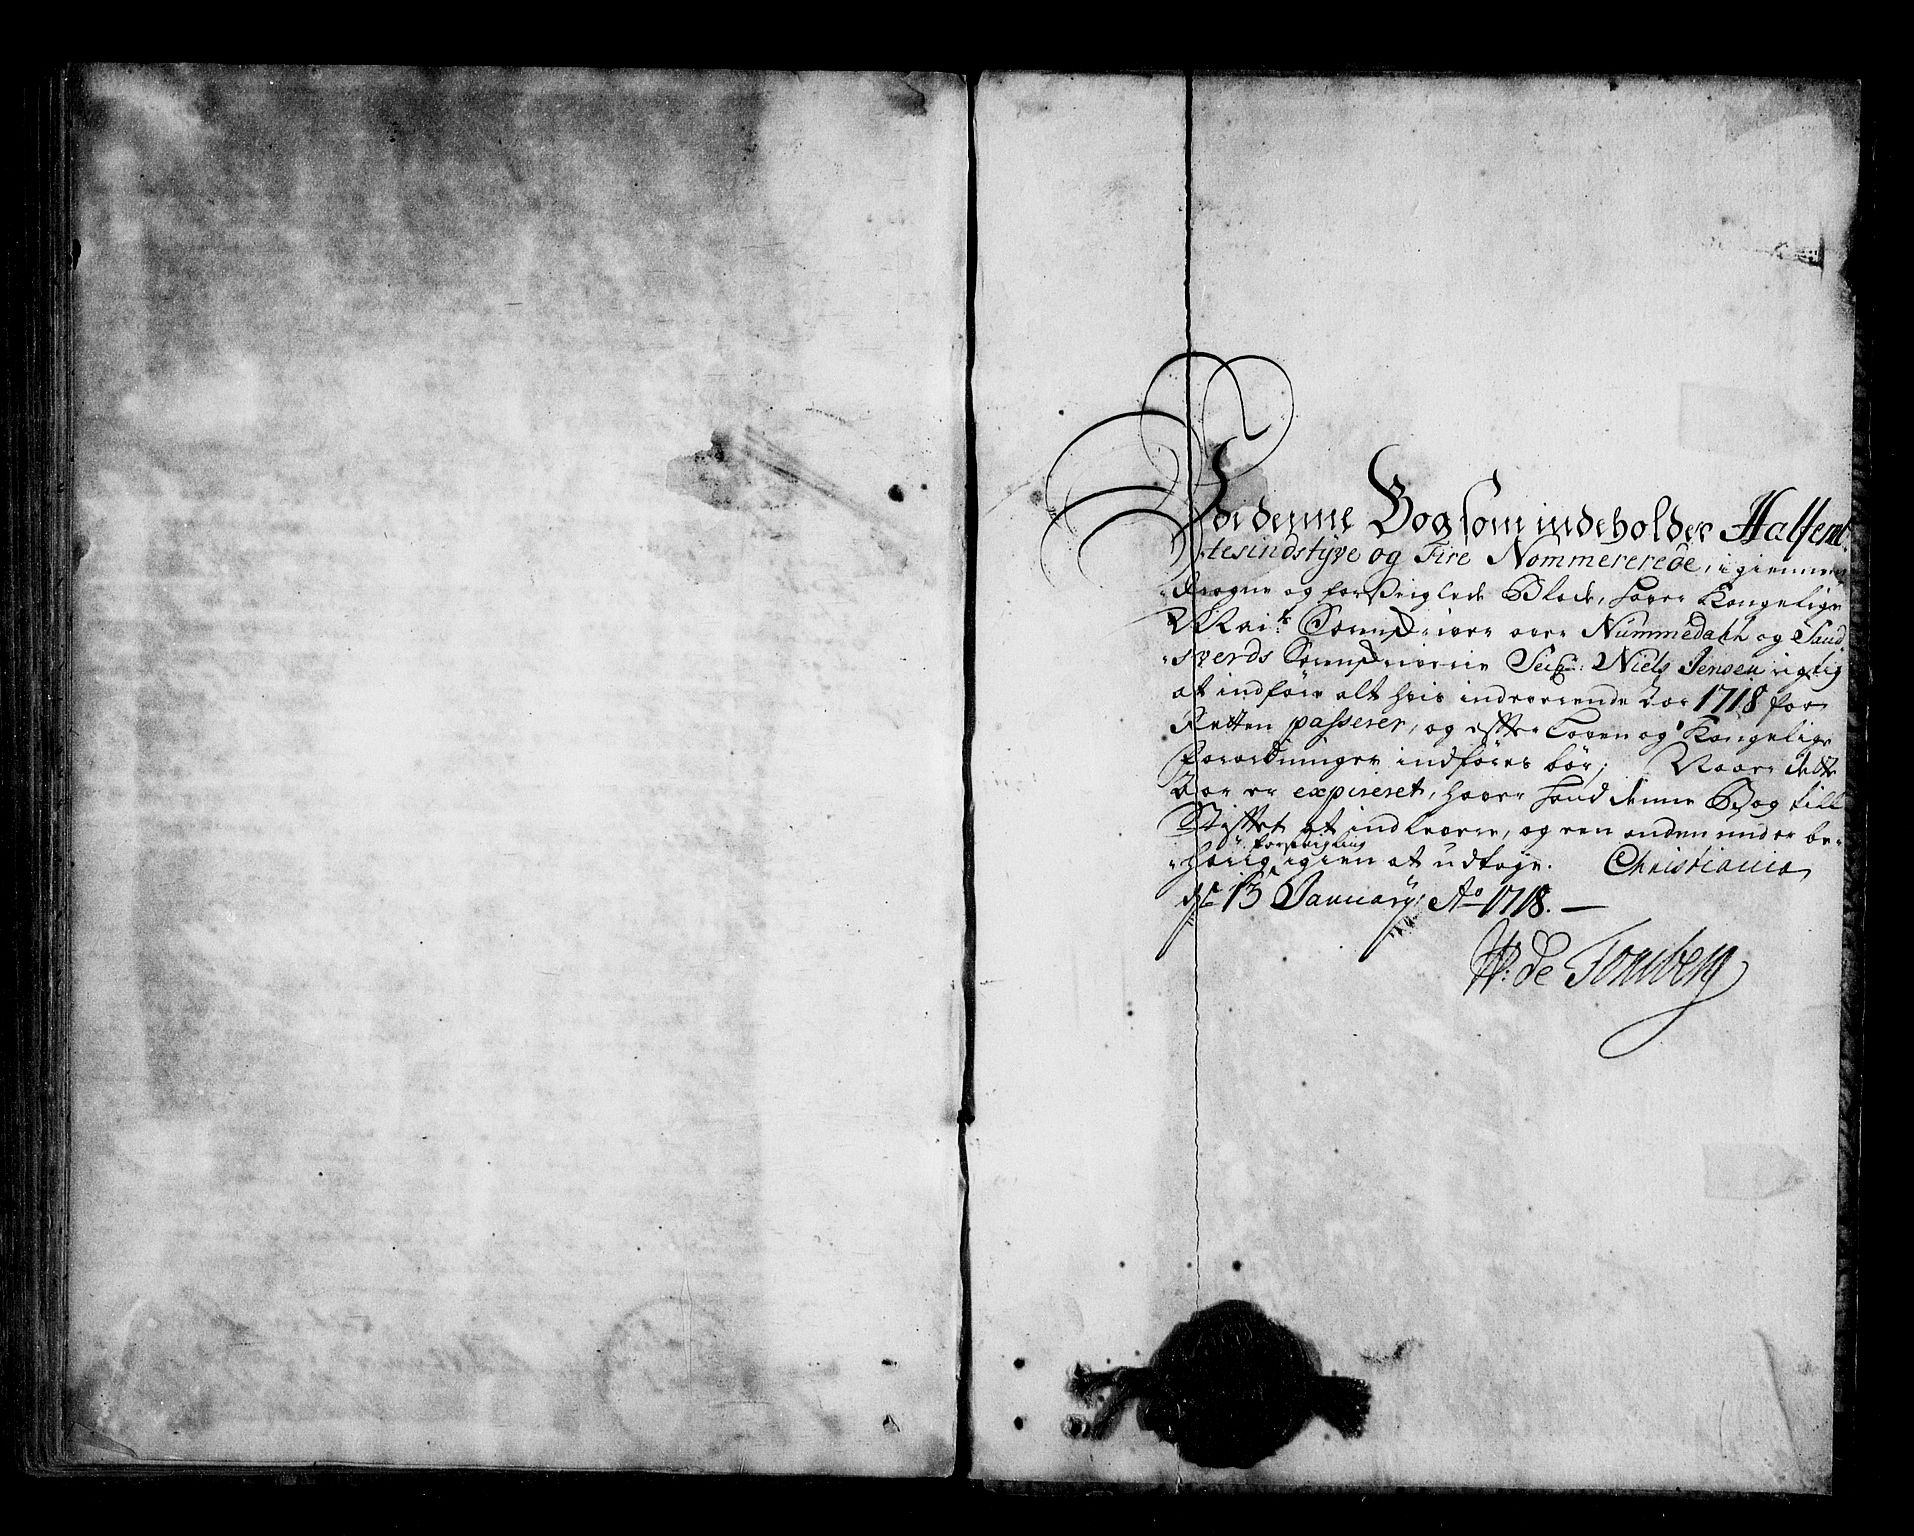 Udi denne Bog som indeholder Halfem¬
tesindstyve og Fire Nommererede, igiennem
dragne og forseiglede Blade, hafver Kongelige
May:ts Sorenskriver over Nummedahl og Sand
sverds Sorenskriverie Seig:r Niels Jensen rigtig
at indføre alt hvis indeværende Aar 1718 for
Retten passerer, og efter Loven og Kongelige
Forordninger indføres bør; Naar dette
Aar er expireret, hafver hand denne Bog till
Stiftet at indlevere, og een anden under be¬
hørig forseigling igien at udtage. Christiania
d. 13 January A:o 1718.
W: de Tonsberg